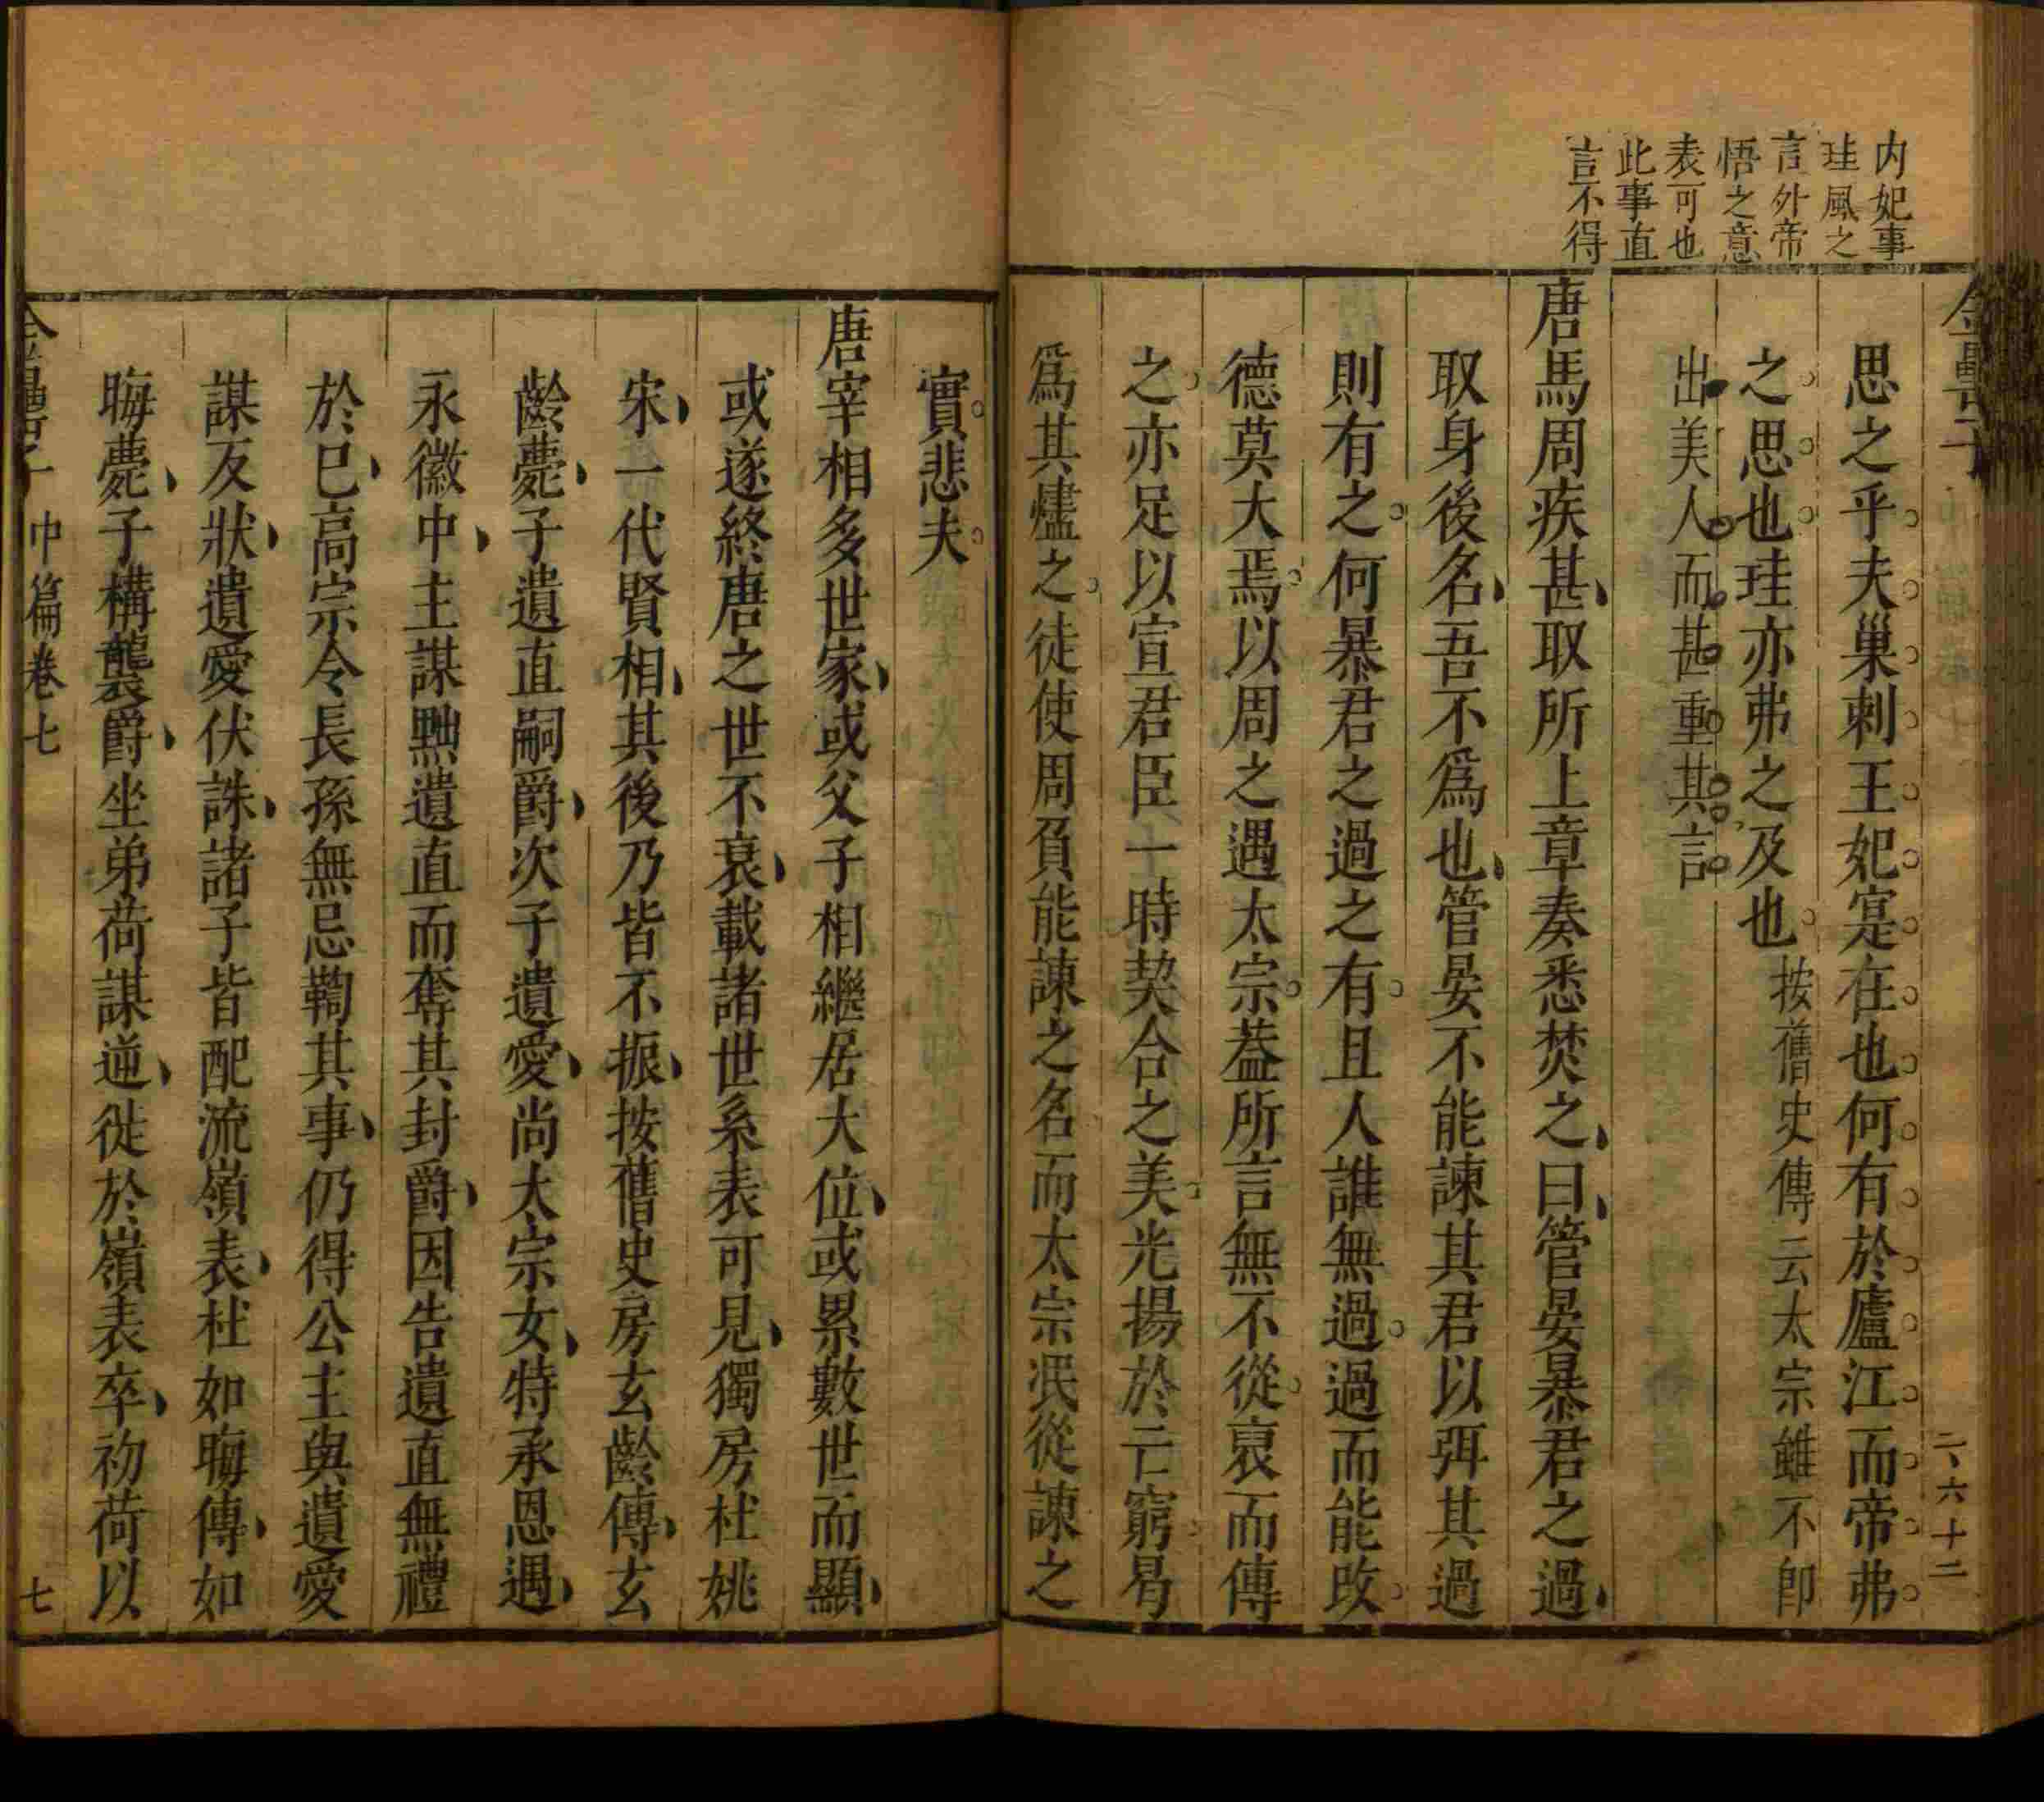 内妃事
珪風之
言外帝
悟之意
表可也
此事直
言不得
金罍子
二、六十二
思之乎夫巢刺王妃寔在也何有於廬江而帝弗
之思也珪亦弗之及也按舊史傳云太宗雖不卽
出美人而甚重其言
唐馬周疾甚取所上章奏悉焚之曰管晏暴君之過
取身後名吾不爲也管晏不能諫其君以弭其過
則有之何暴君之過之有且人誰無過過而能改
德莫大焉以周之遇太宗葢所言無不從裒而傳
之亦足以宣君臣一時契合之美光揚於亡窮曷
爲其燼之徒使周負能諫之名而太宗泯從諫之
實悲夫
唐宰相多世家或父子相繼居大位或累數世而顯
或遂終唐之世不衰載諸世系表可見獨房杜姚
宋一代賢相其後乃皆不振按舊史房玄齡傳玄
齡薨子遺直嗣爵次子遺愛尚太宗女特承恩遇
永徽中主謀黜遺直而奪其封爵因告遺直無禮
於已高宗令長孫無忌鞫其事仍得公主與遺愛
謀反狀遺愛伏誅諸子皆配流嶺表杜如晦傳如
晦薨子構襲爵坐弟荷謀逆徙於嶺表卒初荷以
金罍子 中篇卷七 七